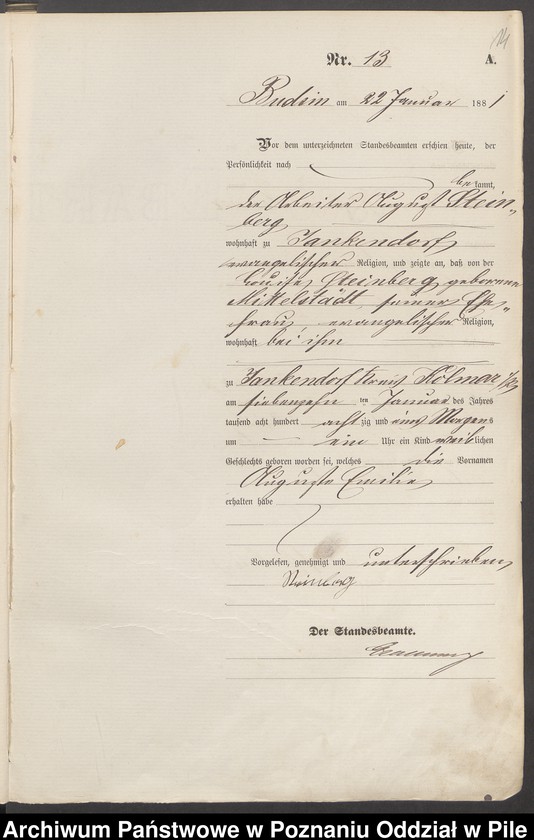 14
Nr. 13 A.
Budsin am 22 Januar 1881
Vor dem unterzeichneten Standesbeamten erschien heute, der
Persönlichkeit nach
bekannt,
der Arbeiter August Stein„
berg
wohnhaft zu Jankendorf
evangelischer Religion, und zeigte an, daß von der
Louise Steinberg geborenen
Mittelstädt, seiner Ehe„
frau, evangelischer Religion,
wohnhaft bei ihm
zu Jankendorf Kreis Kolmar i/P
am siebenzehnten Januar des Jahres
tausend acht hundert achtzig und eins Morgens
um ein Uhr ein Kind weiblichen
Geschlechts geboren worden sei, welches die Vornamen
Auguste Emilie
erhalten habe
Vorgelesen, genehmigt und unterschrieben
Steinberg
Der Standesbeamte.
Archiwum Państwowe w Poznaniu Oddział w Pile